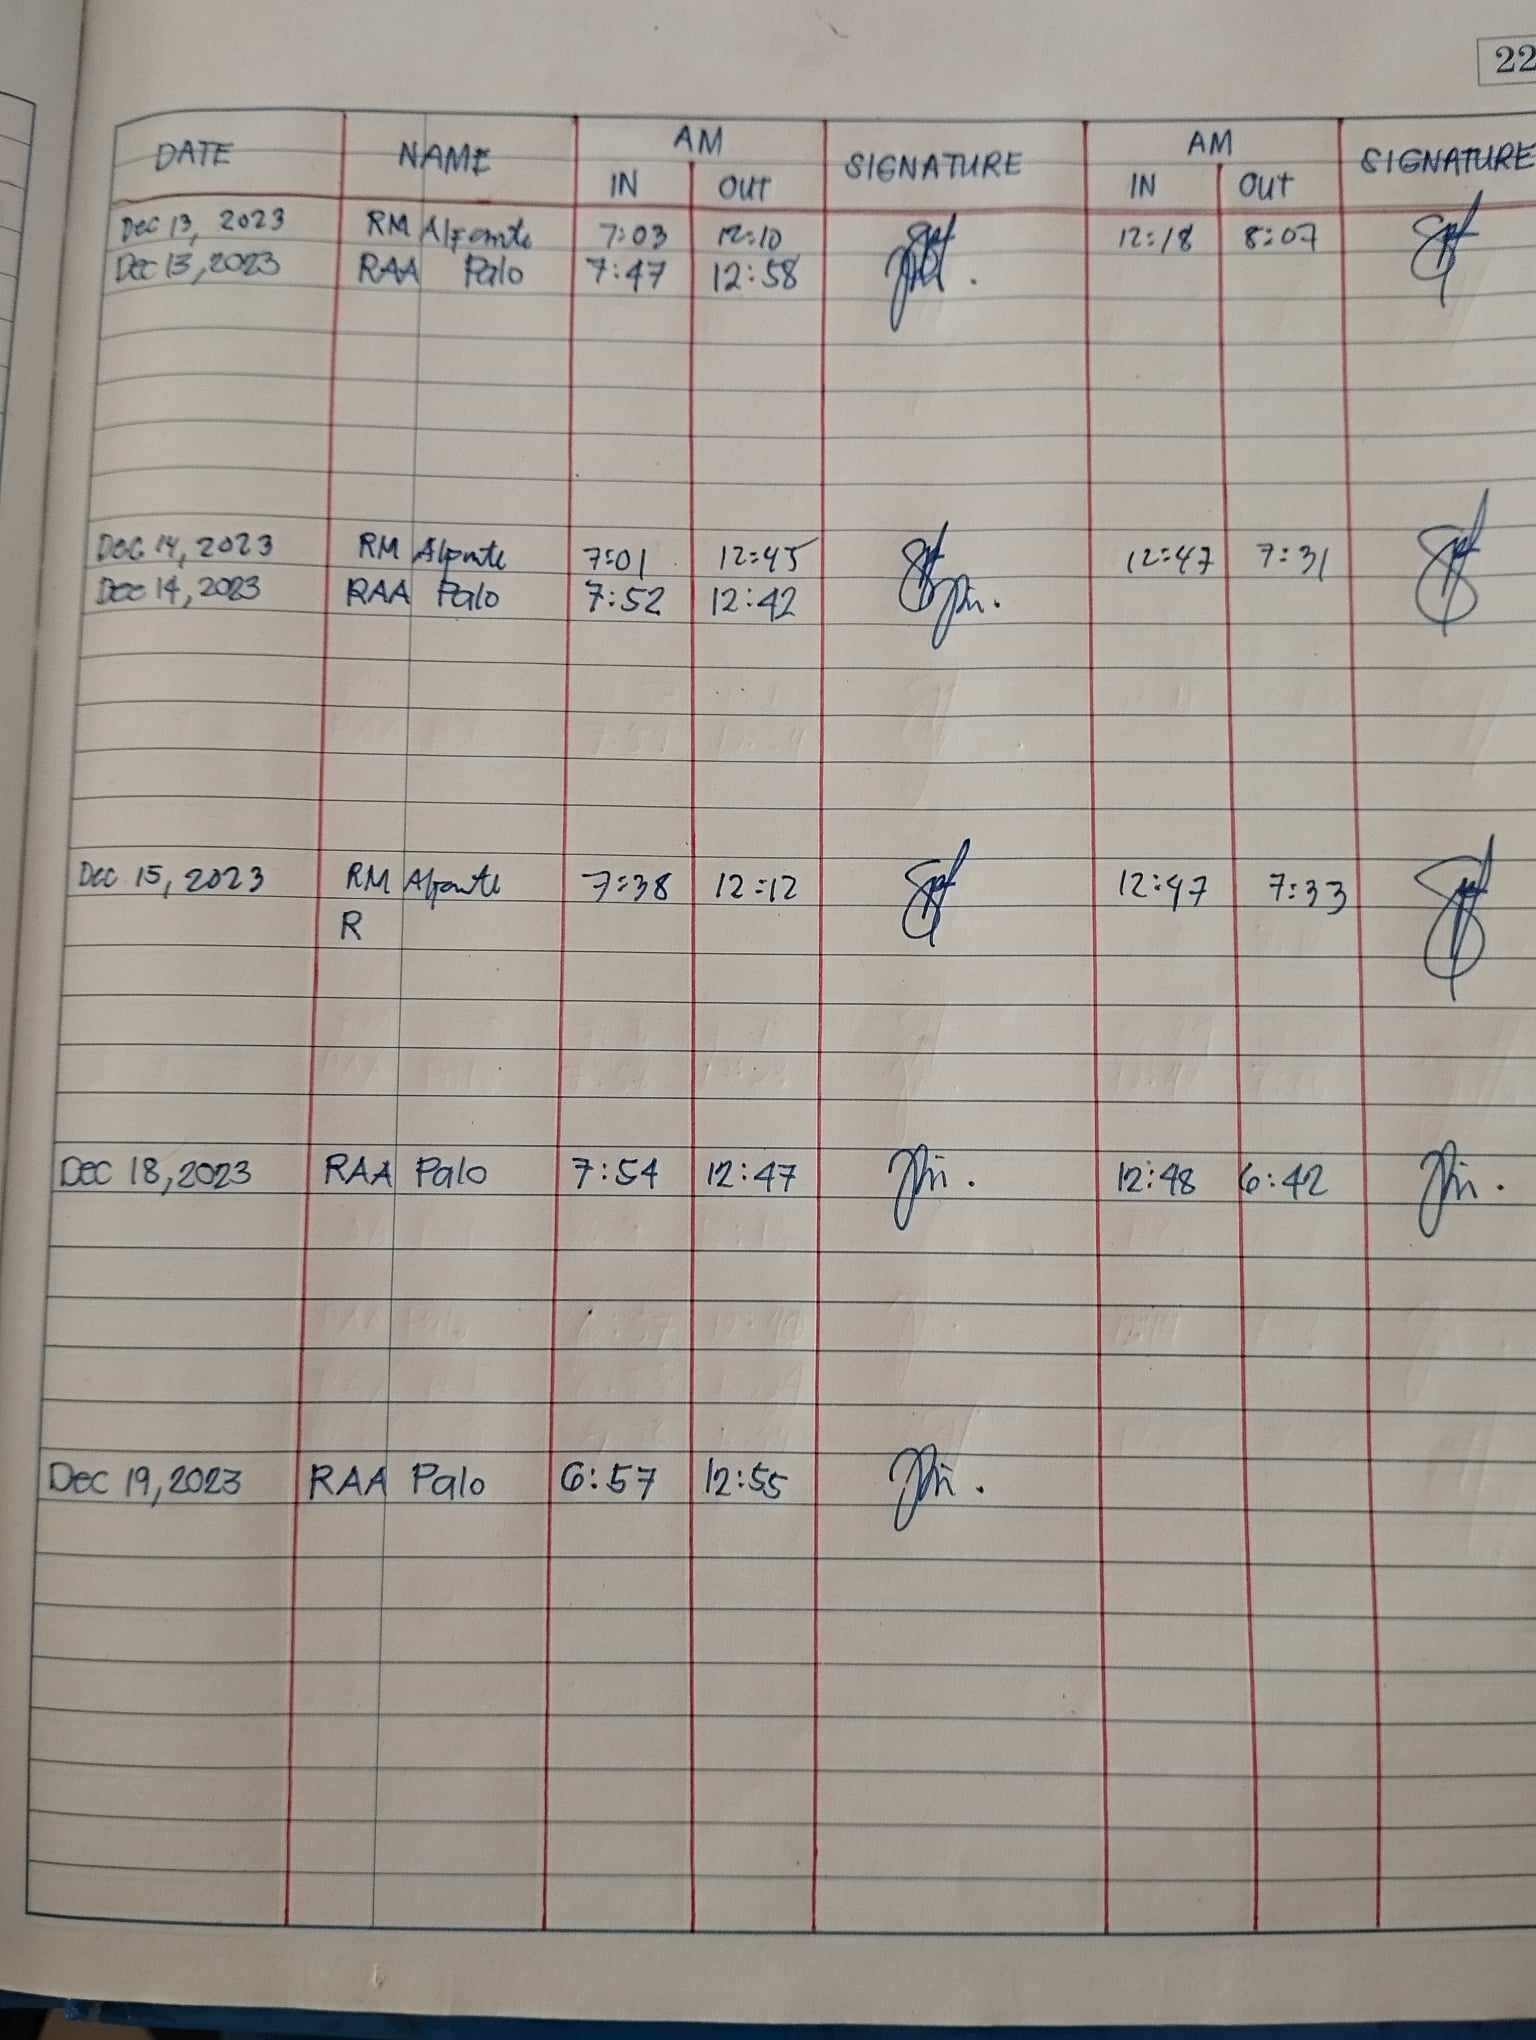 22
DATE NAME AM SIGNATURE AM SIGNATURE
IN OUT IN OUT
Dec 13, 2023 RM 7:03 12:10 12:18 8:07
Dec 13, 2023 RAA Palo 7:47 12:58
Dec 14, 2023 RM 7:01 12:45 12:47 7:31
Dec 14, 2023 RAA Palo 7:52 12:42
Dec 15, 2023 RM 7:38 12:12 12:47 7:33
R
Dec 18, 2023 RAA Palo 7:54 12:47 12:48 6:42
Dec 19, 2023 RAA Palo 6:57 12:55